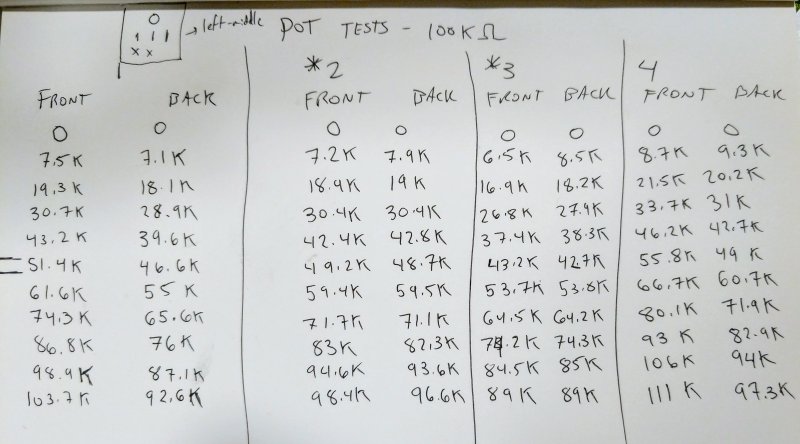 O
→ left-middle POT TESTS - 100K Ω
I I I
X X
*2 *3 4
FRONT BACK FRONT BACK FRONT BACK FRONT BACK
0 0 0 0 0 0 0 0
7.5K 7.1K 7.2K 7.9K 6.5K 8.5K 8.7K 9.3K
19.3K 18.1K 18.9K 19K 16.9K 18.2K 21.5K 20.2K
30.7K 28.9K 30.4K 30.4K 26.8K 27.9K 33.7K 31K
43.2K 39.6K 42.4K 42.8K 37.4K 38.3K 46.2K 42.7K
51.4K 46.6K 49.2K 48.7K 43.2K 42.7K 55.8K 49K
61.6K 55K 59.4K 59.5K 53.7K 53.8K 66.7K 60.7K
74.3K 65.6K 71.7K 71.1K 64.5K 64.2K 80.1K 71.9K
86.8K 76K 83K 82.3K 74.2K 74.3K 93K 82.9K
98.9K 87.1K 94.6K 93.6K 84.5K 85K 106K 94K
103.7K 92.6K 98.4K 96.6K 89K 89K 111K 97.3K